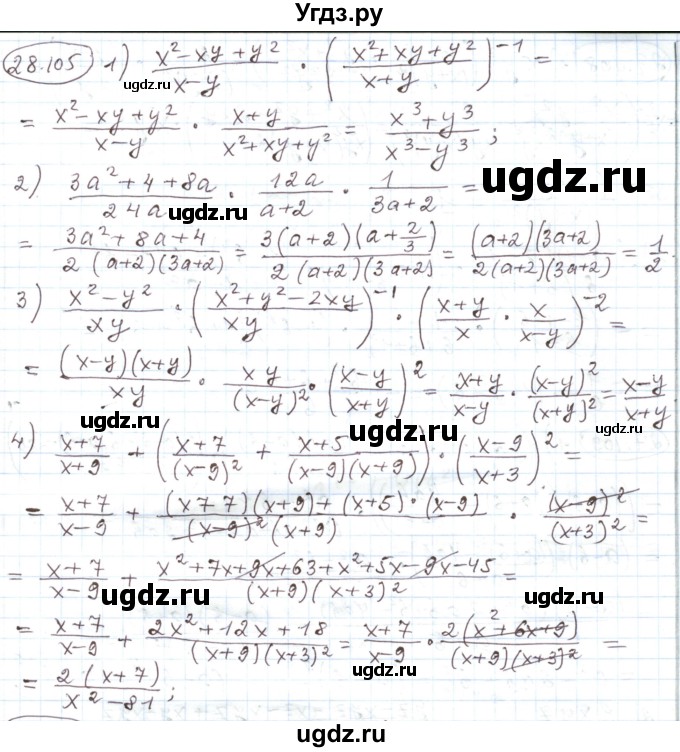 Угдз.ру
28.105 1) (x² - xy + y²)/(x - y) · ((x² + xy + y²)/(x + y))⁻¹ =
ugdz.ru
= (x² - xy + y²)/(x - y) · (x + y)/(x² + xy + y²) = (x³ + y³)/(x³ - y³);
ugdz.ru
2) (3a² + 4 + 8a)/(24a) · (12a)/(a + 2) · 1/(3a + 2) =
ugdz.ru
= (3a² + 8a + 4)/(2(a+2)(3a+2)) = (3(a+2)(a + 2/3))/(2(a+2)(3a+2)) = ((a+2)(3a+2))/(2(a+2)(3a+2)) = 1/2
3) (x² - y²)/(xy) · ((x² + y² - 2xy)/(xy))⁻¹ · ((x + y)/x · x/(x - y))⁻² =
ugdz.ru
ugdz.ru
= ((x - y)(x + y))/(xy) · (xy)/(x - y)² · ((x - y)/(x + y))² = (x + y)/(x - y) · (x - y)²/(x + y)² = (x - y)/(x + y)
ugdz.ru
ugdz.ru
4) (x + 7)/(x + 9) + ((x + 7)/(x - 9)² + (x + 5)/((x - 9)(x + 9))) · ((x - 9)/(x + 3))² =
ugdz.ru
= (x + 7)/(x - 9) + ((x + 7)(x + 9) + (x + 5)·(x - 9))/((x - 9)²(x + 9)) · (x - 9)²/(x + 3)² =
ugdz.ru
= (x + 7)/(x - 9) + (x² + 7x + 9x + 63 + x² + 5x - 9x - 45)/((x + 9)(x + 3)²) =
ugdz.ru
ugdz.ru
= (x + 7)/(x - 9) + (2x² + 12x + 18)/((x + 9)(x + 3)²) = (x + 7)/(x - 9) · (2(x² + 6x + 9))/((x + 9)(x + 3)²) =
ugdz.ru
= (2(x + 7))/(x² - 81);
ugdz.ru
ugdz.ru